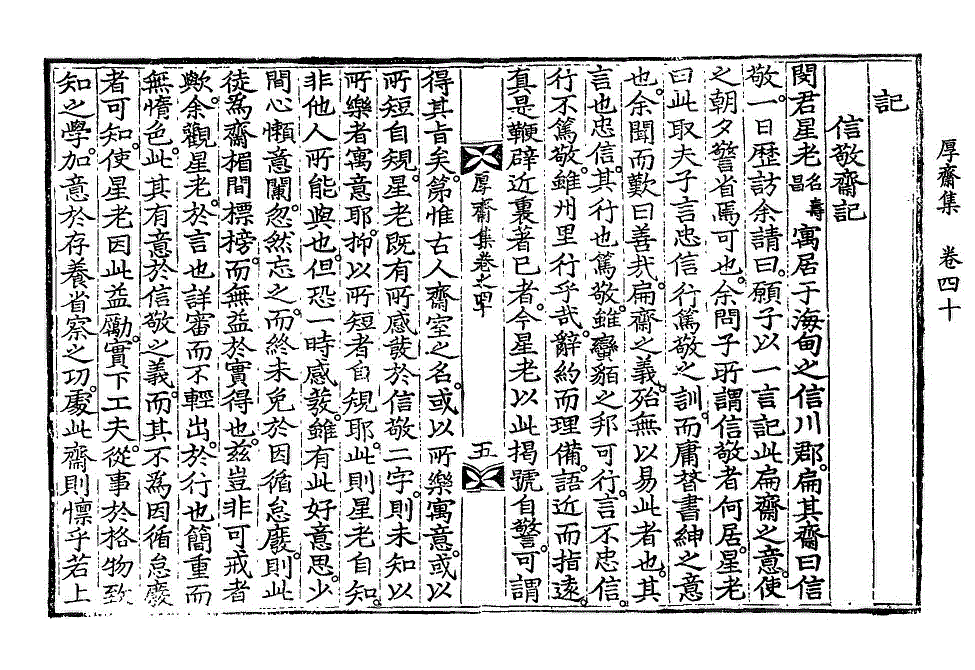 厚齋集　卷四十
記
信敬齋記
閔君星老名壽昌寓居于海甸之信川郡。扁其齋曰信
敬。一日歷訪余請曰。願子以一言記此扁齋之意。使
之朝夕警省焉可也。余問子所謂信敬者何居。星老
曰此取夫子言忠信行篤敬之訓。而庸替書紳之意
也。余聞而歎曰善哉。扁齋之義。殆無以易此者也。其
言也忠信。其行也篤敬。雖蠻貊之邦可行。言不忠信。
行不篤敬。雖州里行乎哉。辭約而理備。語近而指遠。
眞是鞭辟近裏著已者。今星老以此揭號自警。可謂
厚齋集卷之四十　五
得其旨矣。第惟古人齋室之名。或以所樂寓意。或以
所短自規。星老旣有所感發於信敬二字。則未知以
所樂者寓意耶。抑以所短者自規耶。此則星老自知。
非他人所能與也。但恐一時感發。雖有此好意思。少
間心懶意闌。忽然忘之。而終未免於因循怠廢。則此
徒爲齋楣間標榜。而無益於實得也。玆豈非可戒者
歟。余觀星老。於言也詳審而不輕出。於行也簡重而
無惰色。此其有意於信敬之義。而其不爲因循怠廢
者可知。使星老因此益勵。實下工夫。從事於格物致
知之學。加意於存養省察之功。處此齋則懍乎若上